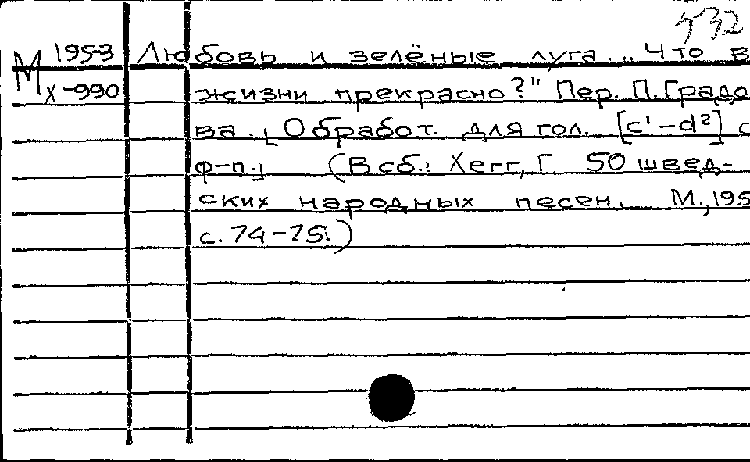 532
М 1953 Любовь и зелёные луга. „Что в
X-990 жизни прекрасно?" Пер. П. Градо-
ва. [Обработ. для гол. [c¹-d²] с
ф-п.] (В сб.: Хегг, Г. 50 швед-
ских народных песен. М., 195
с. 74-75.)